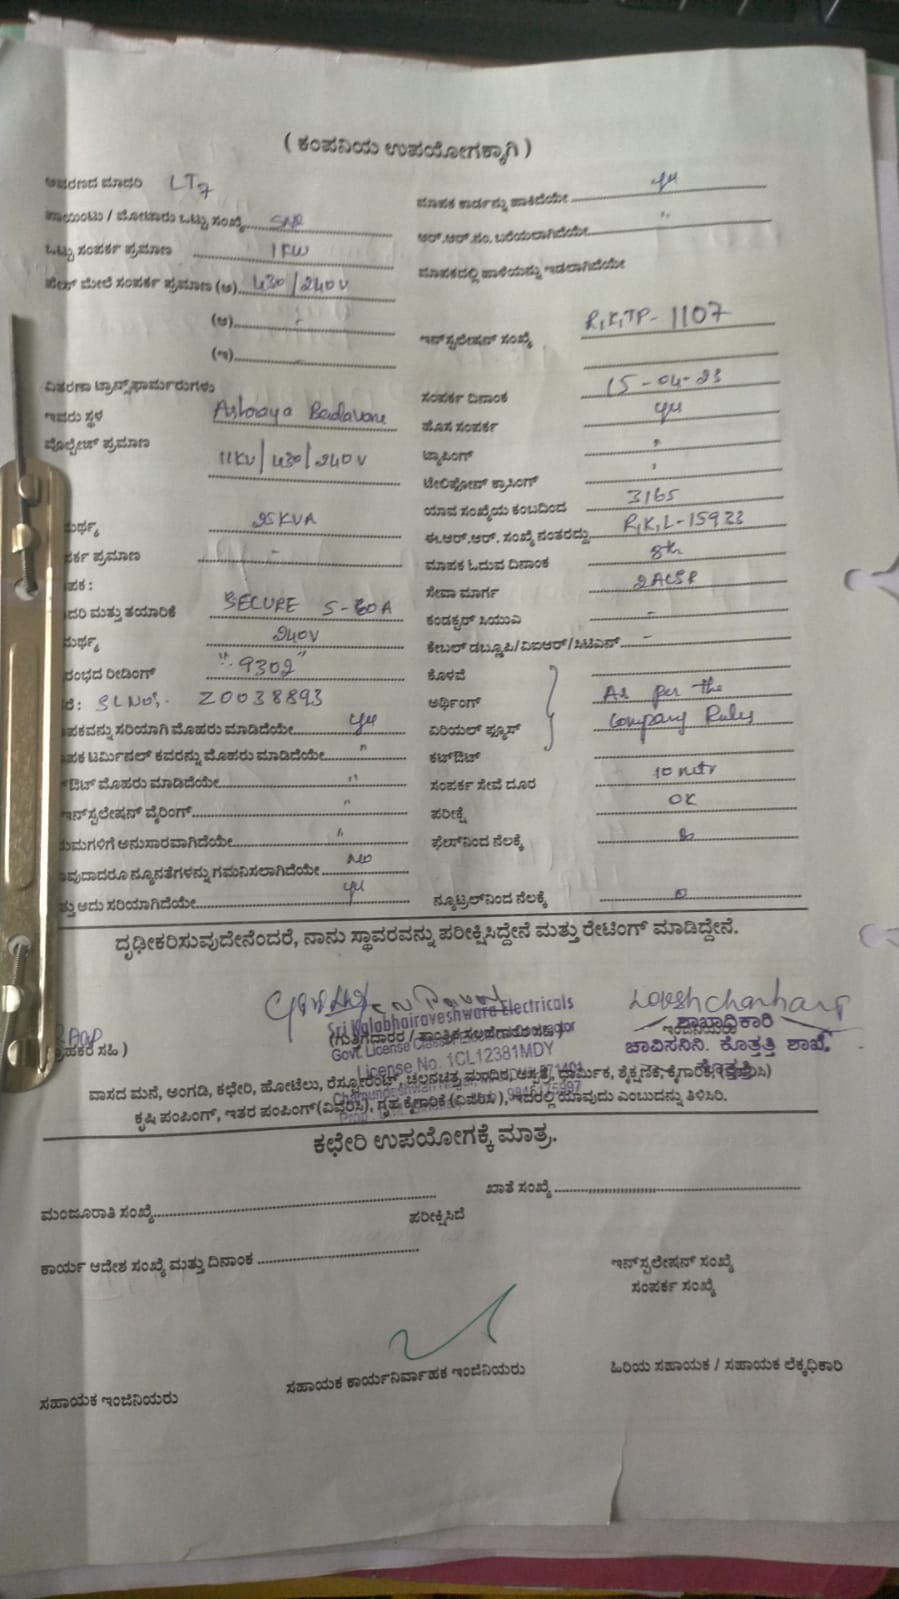 ( ಕಂಪನಿಯ ಉಪಯೋಗಕ್ಕಾಗಿ )
ಆವರಣದ ಮಾದರಿ LT7
ಪಾಯಿಂಟು / ಮೋಟಾರು ಒಟ್ಟು ಸಂಖ್ಯೆ
ಒಟ್ಟು ಸಂಪರ್ಕ ಪ್ರಮಾಣ 1KW
ಫೇಸ್ ಮೇಲೆ ಸಂಪರ್ಕ ಪ್ರಮಾಣ (ಅ) 430/240V
(ಆ) -
(ಇ) -
ವಿತರಣಾ ಟ್ರಾನ್ಸ್‌ಫಾರ್ಮರುಗಳು
ಇವರು ಸ್ಥಳ Ashraya Badavane
ವೋಲ್ಟೇಜ್ ಪ್ರಮಾಣ 11KV/430/240V
ಮರ್ಥ್ಯ 25KVA
ಪರ್ಕ ಪ್ರಮಾಣ -
ಪಕ :
ದರಿ ಮತ್ತು ತಯಾರಿಕೆ SECURE 5-30A
ಮರ್ಥ್ಯ 240V
ರಂಭದ ರೀಡಿಂಗ್ "9302"
ರೆ : SLNo:- Z0038893
ಪಕವನ್ನು ಸರಿಯಾಗಿ ಮೊಹರು ಮಾಡಿದೆಯೇ yes
ಪಕ ಟರ್ಮಿನಲ್ ಕವರನ್ನು ಮೊಹರು ಮಾಡಿದೆಯೇ "
ಔಟ್ ಮೊಹರು ಮಾಡಿದೆಯೇ "
ಇನ್‌ಸ್ಟಲೇಷನ್ ವೈರಿಂಗ್ "
ಯಮಗಳಿಗೆ ಅನುಸಾರವಾಗಿದೆಯೇ "
ವುದಾದರೂ ನ್ಯೂನತೆಗಳನ್ನು ಗಮನಿಸಲಾಗಿದೆಯೇ No
ತ್ತು ಅದು ಸರಿಯಾಗಿದೆಯೇ yes
ಮಾಪಕ ಕಾರ್ಡನ್ನು ಹಾಕಿದೆಯೇ yes
ಆರ್.ಆರ್.ನಂ. ಬರೆಯಲಾಗಿದೆಯೇ "
ಮಾಪಕದಲ್ಲಿ ಹಾಳೆಯನ್ನು ಇಡಲಾಗಿದೆಯೇ
ಇನ್‌ಸ್ಟಲೇಷನ್ ಸಂಖ್ಯೆ R,K,TP-1107
ಸಂಪರ್ಕ ದಿನಾಂಕ 15-04-23
ಹೊಸ ಸಂಪರ್ಕ yes
ಟ್ಯಾಪಿಂಗ್ "
ಟೆಲಿಫೋನ್ ಕ್ರಾಸಿಂಗ್ '
ಯಾವ ಸಂಖ್ಯೆಯ ಕಂಬದಿಂದ 3165
ಈ.ಆರ್.ಆರ್. ಸಂಖ್ಯೆ ನಂತರದ್ದು R,K,L-15923
ಮಾಪಕ ಓದುವ ದಿನಾಂಕ 8th
ಸೇವಾ ಮಾರ್ಗ 2ACSR
ಕಂಡಕ್ಟರ್ ಸಿಯುಎ -
ಕೇಬಲ್ ಡಬ್ಲ್ಯೂಪಿ/ವಿಐಆರ್/ಸಿಟಿಎಸ್ -
ಕೊಳವೆ
ಅರ್ಥಿಂಗ್ As per the
ಏರಿಯಲ್ ಫ್ಯೂಸ್ Company Rules
ಕಟ್‌ಔಟ್
ಸಂಪರ್ಕ ಸೇವೆ ದೂರ 10 mtr
ಪರೀಕ್ಷೆ OK
ಫೇಸ್‌ನಿಂದ ನೆಲಕ್ಕೆ
ನ್ಯೂಟ್ರಲ್‌ನಿಂದ ನೆಲಕ್ಕೆ 0
ದೃಢೀಕರಿಸುವುದೇನೆಂದರೆ, ನಾನು ಸ್ಥಾವರವನ್ನು ಪರೀಕ್ಷಿಸಿದ್ದೇನೆ ಮತ್ತು ರೇಟಿಂಗ್ ಮಾಡಿದ್ದೇನೆ.
Sri Kalabhairaveshwara Electricals
Govt. License Class
License No. 1CL12381MDY
ಹಕರ ಸಹಿ )
(ಗುತ್ತಿಗೆದಾರರ / ತಾಂತ್ರಿಕ ಸಲಹೆಗಾರರ ಸಹಿ )
ಇಂಜಿನಿಯರು
ಶಾಖಾಧಿಕಾರಿ
ಚಾವಿಸನಿನಿ. ಕೊತ್ತತ್ತಿ ಶಾಖೆ,
ವಾಸದ ಮನೆ, ಅಂಗಡಿ, ಕಛೇರಿ, ಹೋಟೆಲು, ರೆಸ್ಟೋರೆಂಟ್, ಚಲನಚಿತ್ರ ಮಂದಿರ, ಆಸ್ಪತ್ರೆ, ಧಾರ್ಮಿಕ, ಶೈಕ್ಷಣಿಕ, ಕೈಗಾರಿಕೆ, (ವಿವರಿಸಿ)
ಕೃಷಿ ಪಂಪಿಂಗ್, ಇತರ ಪಂಪಿಂಗ್ (ವಿವರಿಸಿ), ಗೃಹ ಕೈಗಾರಿಕೆ (ವಿವರಿಸಿ ), ಇದರಲ್ಲಿ ಯಾವುದು ಎಂಬುದನ್ನು ತಿಳಿಸಿರಿ.
ಕಛೇರಿ ಉಪಯೋಗಕ್ಕೆ ಮಾತ್ರ.
ಮಂಜೂರಾತಿ ಸಂಖ್ಯೆ
ಖಾತೆ ಸಂಖ್ಯೆ
ಪರೀಕ್ಷಿಸಿದೆ
ಕಾರ್ಯ ಆದೇಶ ಸಂಖ್ಯೆ ಮತ್ತು ದಿನಾಂಕ
ಇನ್‌ಸ್ಟಲೇಷನ್ ಸಂಖ್ಯೆ
ಸಂಪರ್ಕ ಸಂಖ್ಯೆ
ಸಹಾಯಕ ಇಂಜಿನಿಯರು
ಸಹಾಯಕ ಕಾರ್ಯನಿರ್ವಾಹಕ ಇಂಜಿನಿಯರು
ಹಿರಿಯ ಸಹಾಯಕ / ಸಹಾಯಕ ಲೆಕ್ಕಾಧಿಕಾರಿ